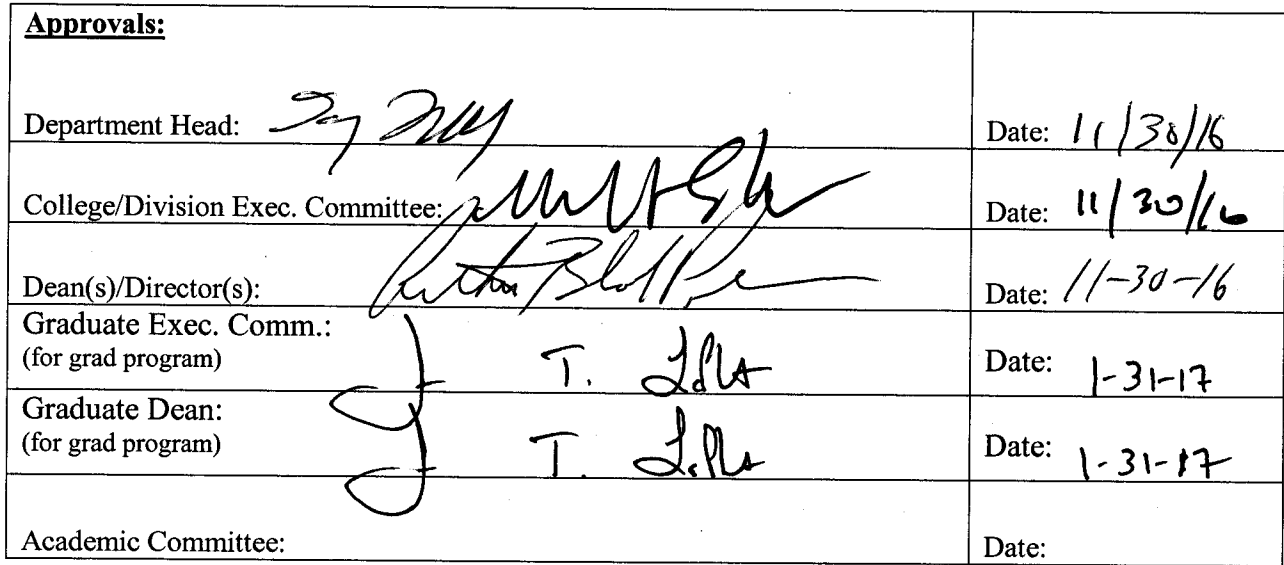 Approvals:
Department Head: Date: 11/30/16
College/Division Exec. Committee: Date: 11/30/16
Dean(s)/Director(s): Date: 11-30-16
Graduate Exec. Comm.:
(for grad program) J T. Date: 1-31-17
Graduate Dean:
(for grad program) J T. Date: 1-31-17
Academic Committee: Date: